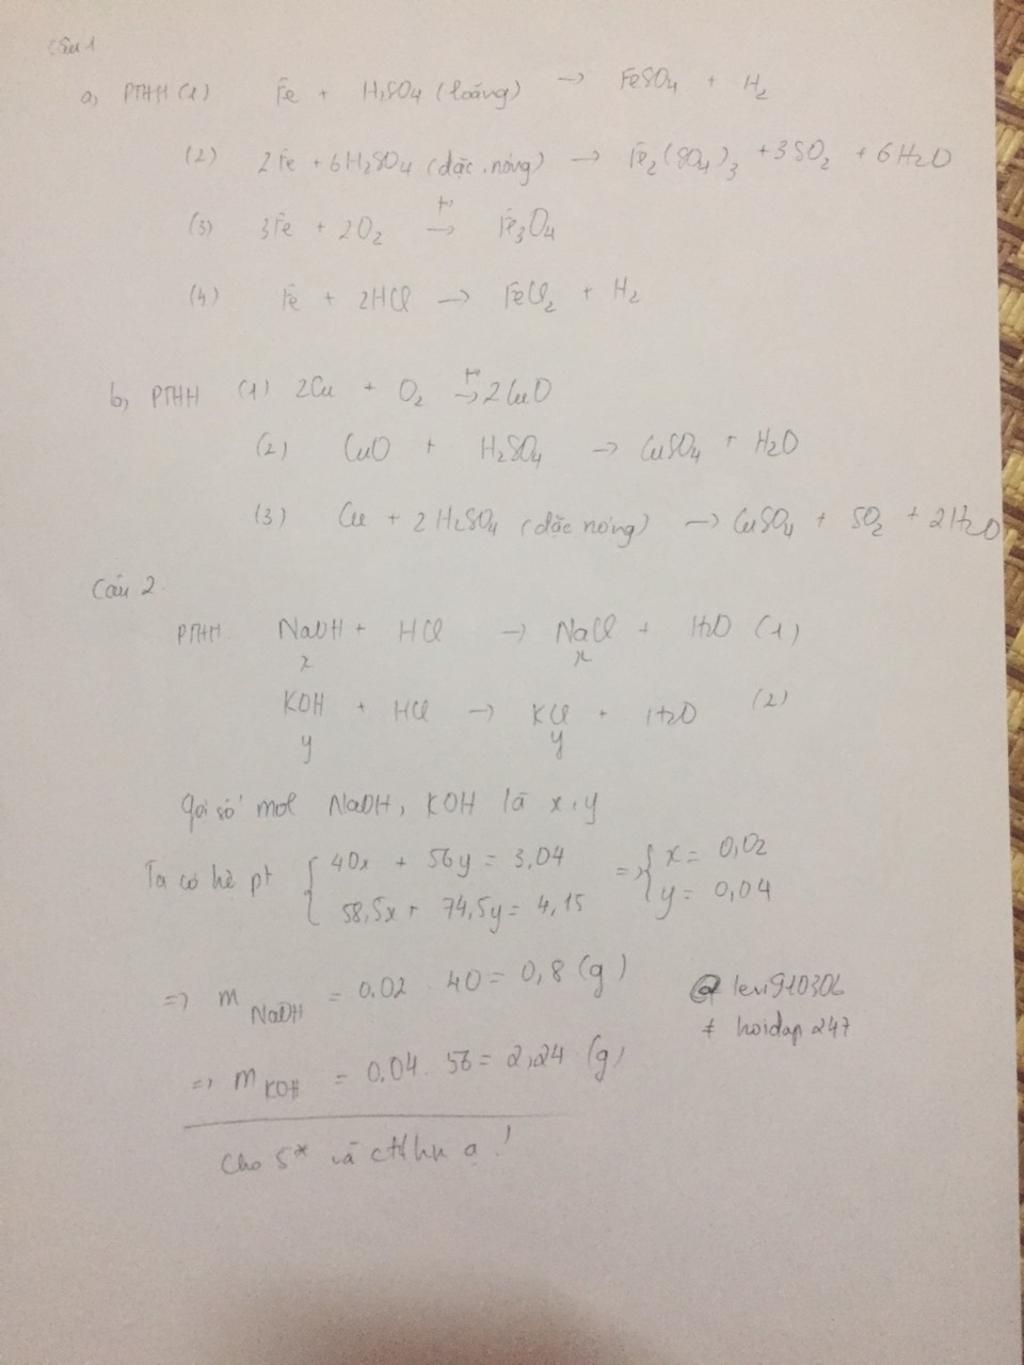 Câu 1
a, PTHH (1) Fe + H2SO4 (loãng) → FeSO4 + H2
(2) 2Fe + 6H2SO4 (đặc, nóng) → Fe2(SO4)3 + 3SO2 + 6H2O
(3) 3Fe + 2O2 →(t°) Fe3O4
(4) Fe + 2HCl → FeCl2 + H2
b, PTHH (1) 2Cu + O2 →(t°) 2CuO
(2) CuO + H2SO4 → CuSO4 + H2O
(3) Cu + 2H2SO4 (đặc nóng) → CuSO4 + SO2 + 2H2O
Câu 2
PTHH NaOH + HCl → NaCl + H2O (1)
x x
KOH + HCl → KCl + H2O (2)
y y
gọi số mol NaOH, KOH là x, y
Ta có hệ pt { 40x + 56y = 3,04 => { x = 0,02
58,5x + 74,5y = 4,15 y = 0,04
=> m NaOH = 0,02 . 40 = 0,8 (g)
@levi910306
# hoidap247
=> m KOH = 0,04 . 56 = 2,24 (g)
Cho 5* và ctlhn ạ !